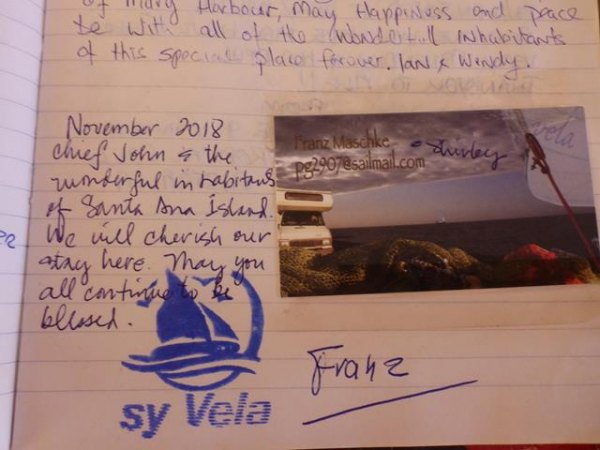 of Mary Harbour, May Happiness and peace
be with all of the wonderfull inhabitants
of this special place forever. Ian & Wendy
November 2018
Chief John & the
wonderful inhabitans
of Santa Ana Island.
We will cherish our
stay here. May you
all continue to be
blessed.
Franz Maschke & Shirley
pg2907@sailmail.com
vela
sy Vela
Franz